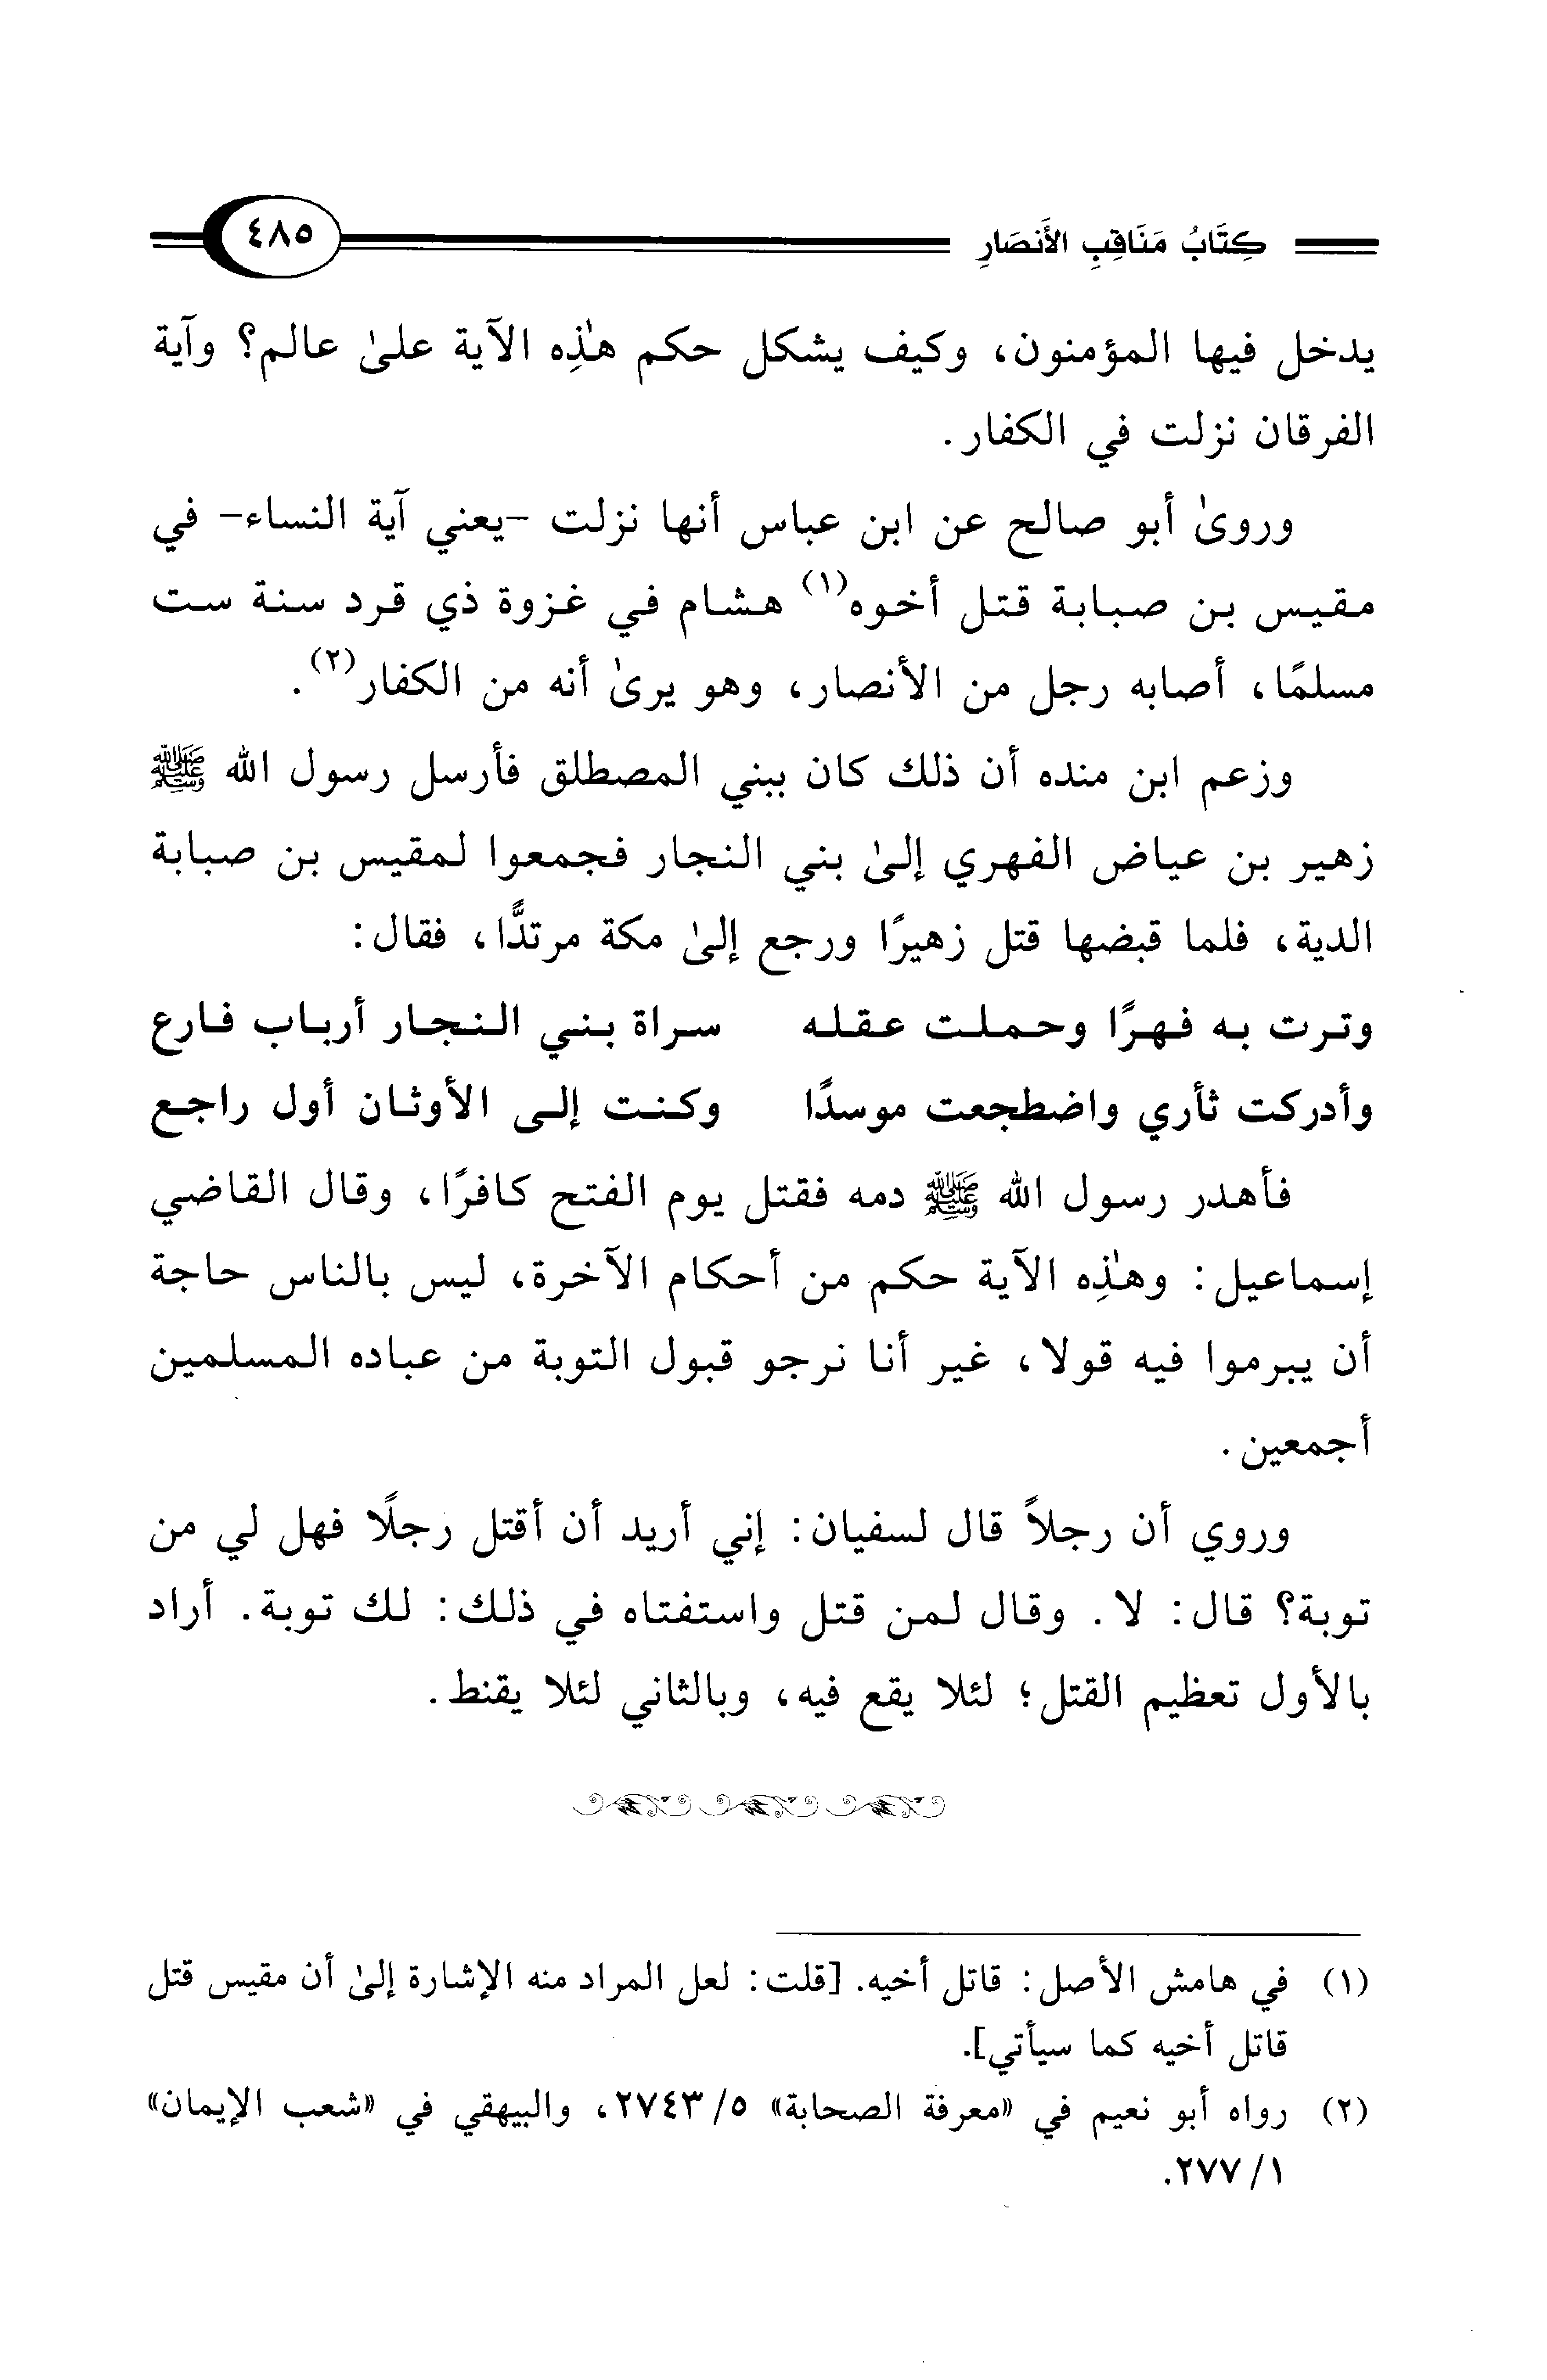 كِتَابُ مَنَاقِبِ الأَنصَارِ
٤٨٥
يدخل فيها المؤمنون، وكيف يشكل حكم هذِه الآية علىٰ عالم؟ وآية
الفرقان نزلت في الكفار.
وروىٰ أبو صالح عن ابن عباس أنها نزلت -يعني آية النساء- في
مقيس بن صبابة قتل أخوه(١) هشام في غزوة ذي قرد سنة ست
مسلمًا، أصابه رجل من الأنصار، وهو يرىٰ أنه من الكفار(٢).
وزعم ابن منده أن ذلك كان ببني المصطلق فأرسل رسول الله ﷺ
زهير بن عياض الفهري إلىٰ بني النجار فجمعوا لمقيس بن صبابة
الدية، فلما قبضها قتل زهيرًا ورجع إلىٰ مكة مرتدًّا، فقال:
وترت به فهرًا وحملت عقله سراة بني النجار أرباب فارع
وأدركت ثأري واضطجعت موسدًا وكنت إلى الأوثان أول راجع
فأهدر رسول الله ﷺ دمه فقتل يوم الفتح كافرًا، وقال القاضي
إسماعيل: وهذِه الآية حكم من أحكام الآخرة، ليس بالناس حاجة
أن يبرموا فيه قولا، غير أنا نرجو قبول التوبة من عباده المسلمين
أجمعين.
وروي أن رجلاً قال لسفيان: إني أريد أن أقتل رجلًا فهل لي من
توبة؟ قال: لا. وقال لمن قتل واستفتاه في ذلك: لك توبة. أراد
بالأول تعظيم القتل؛ لئلا يقع فيه، وبالثاني لئلا يقنط.
(١) في هامش الأصل: قاتل أخيه. [قلت: لعل المراد منه الإشارة إلىٰ أن مقيس قتل
قاتل أخيه كما سيأتي].
(٢) رواه أبو نعيم في «معرفة الصحابة» ٥/ ٢٧٤٣، والبيهقي في «شعب الإيمان»
١/ ٢٧٧.